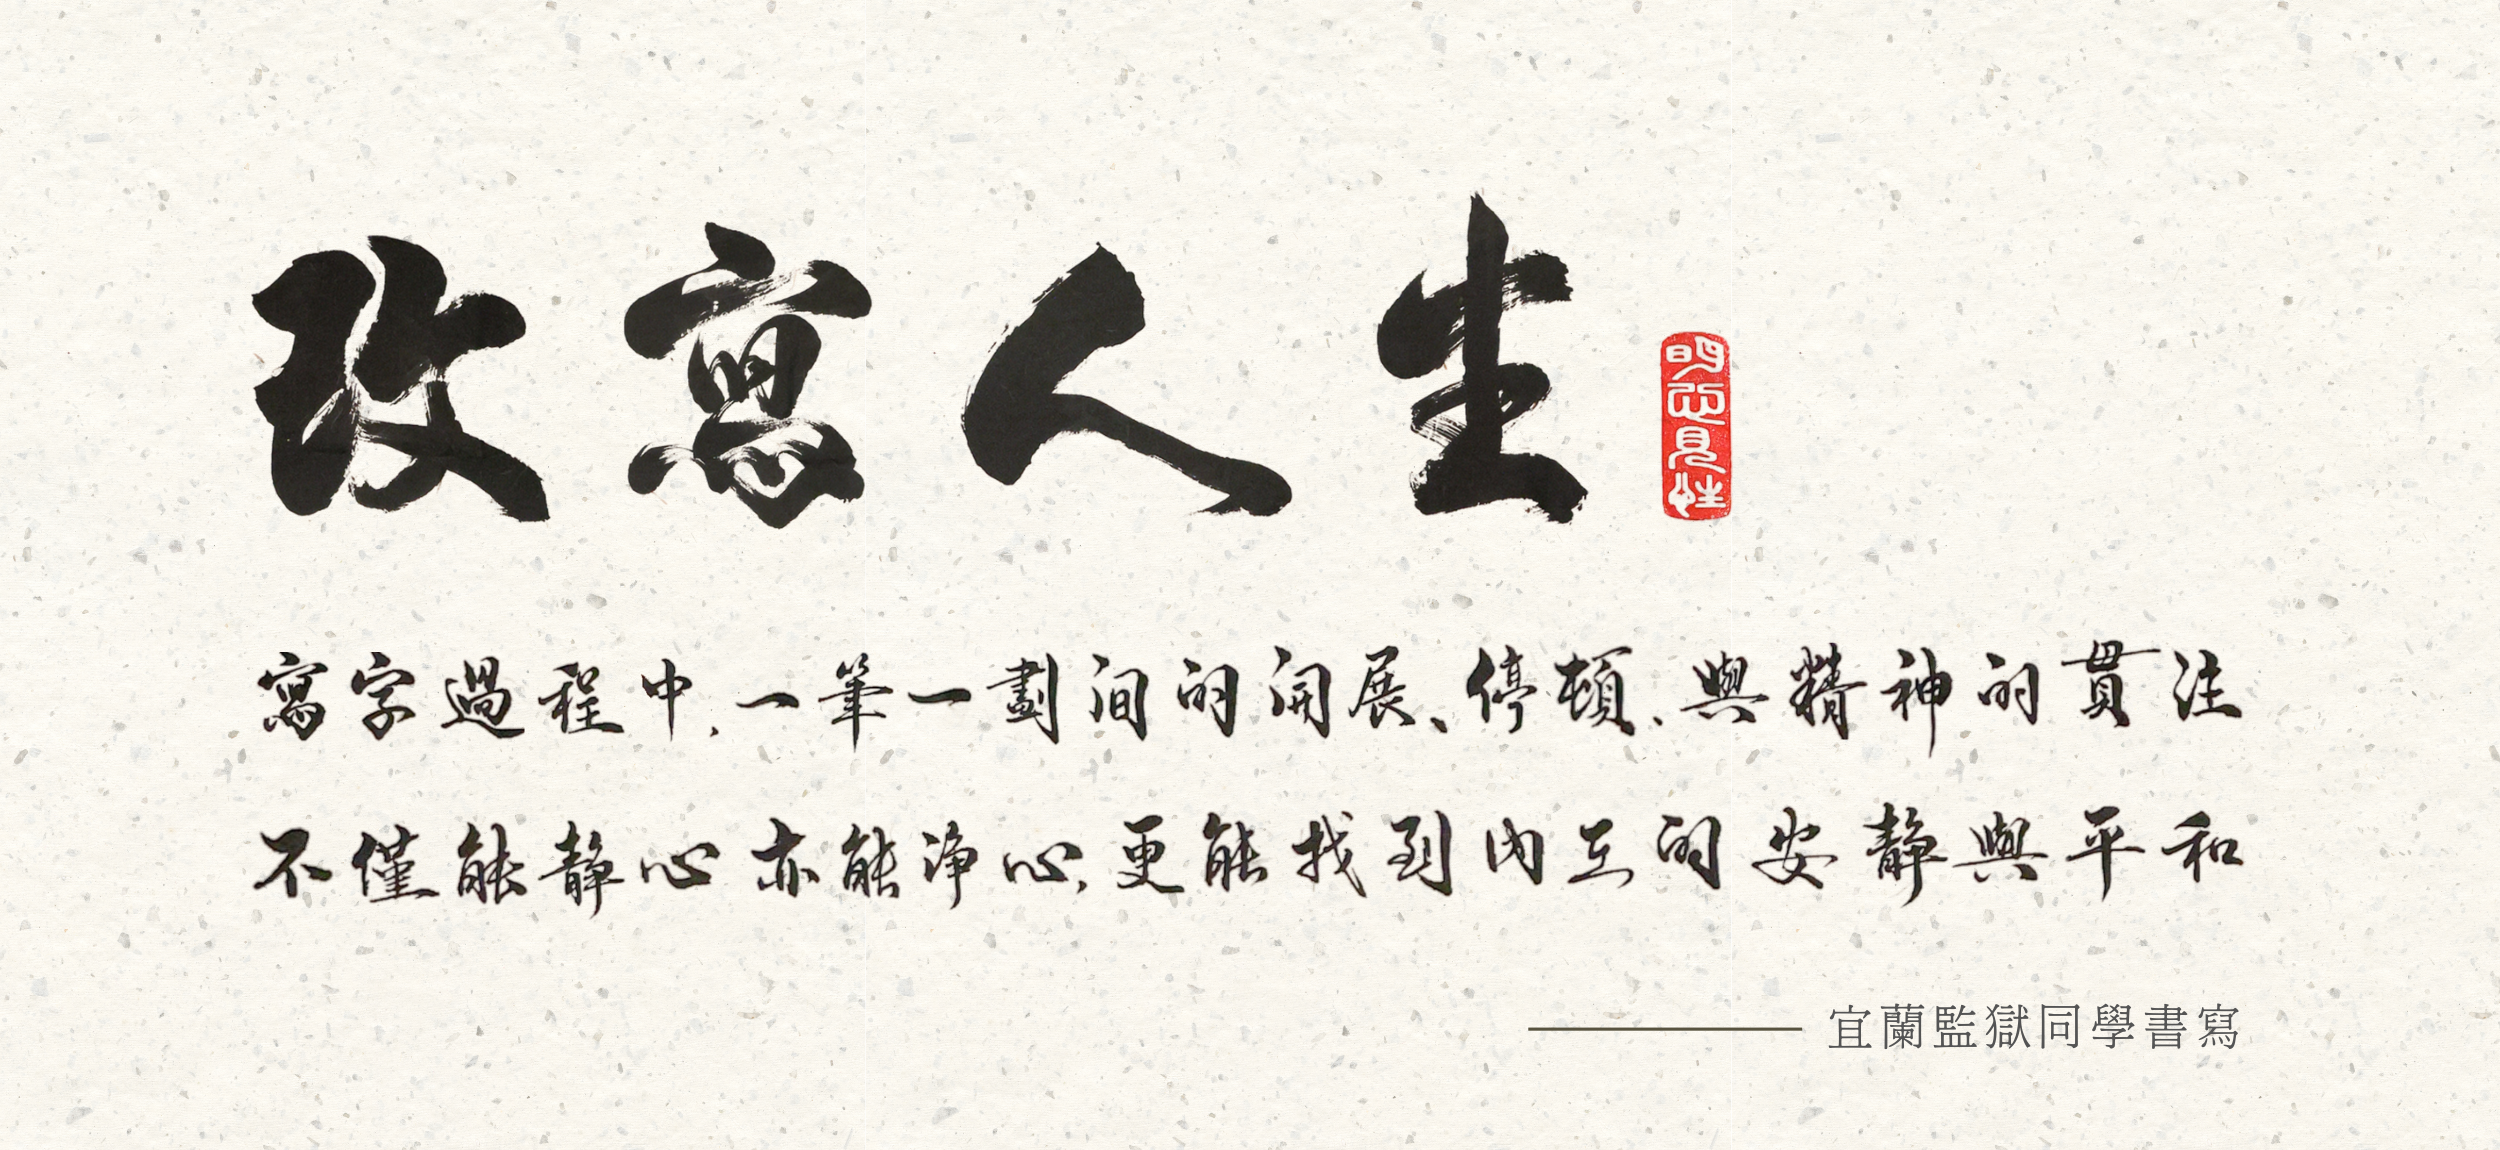 改寫人生
明心見性
寫字過程中，一筆一劃間的開展、停頓、與精神的貫注
不僅能靜心亦能淨心，更能找到內在的安靜與平和
宜蘭監獄同學書寫